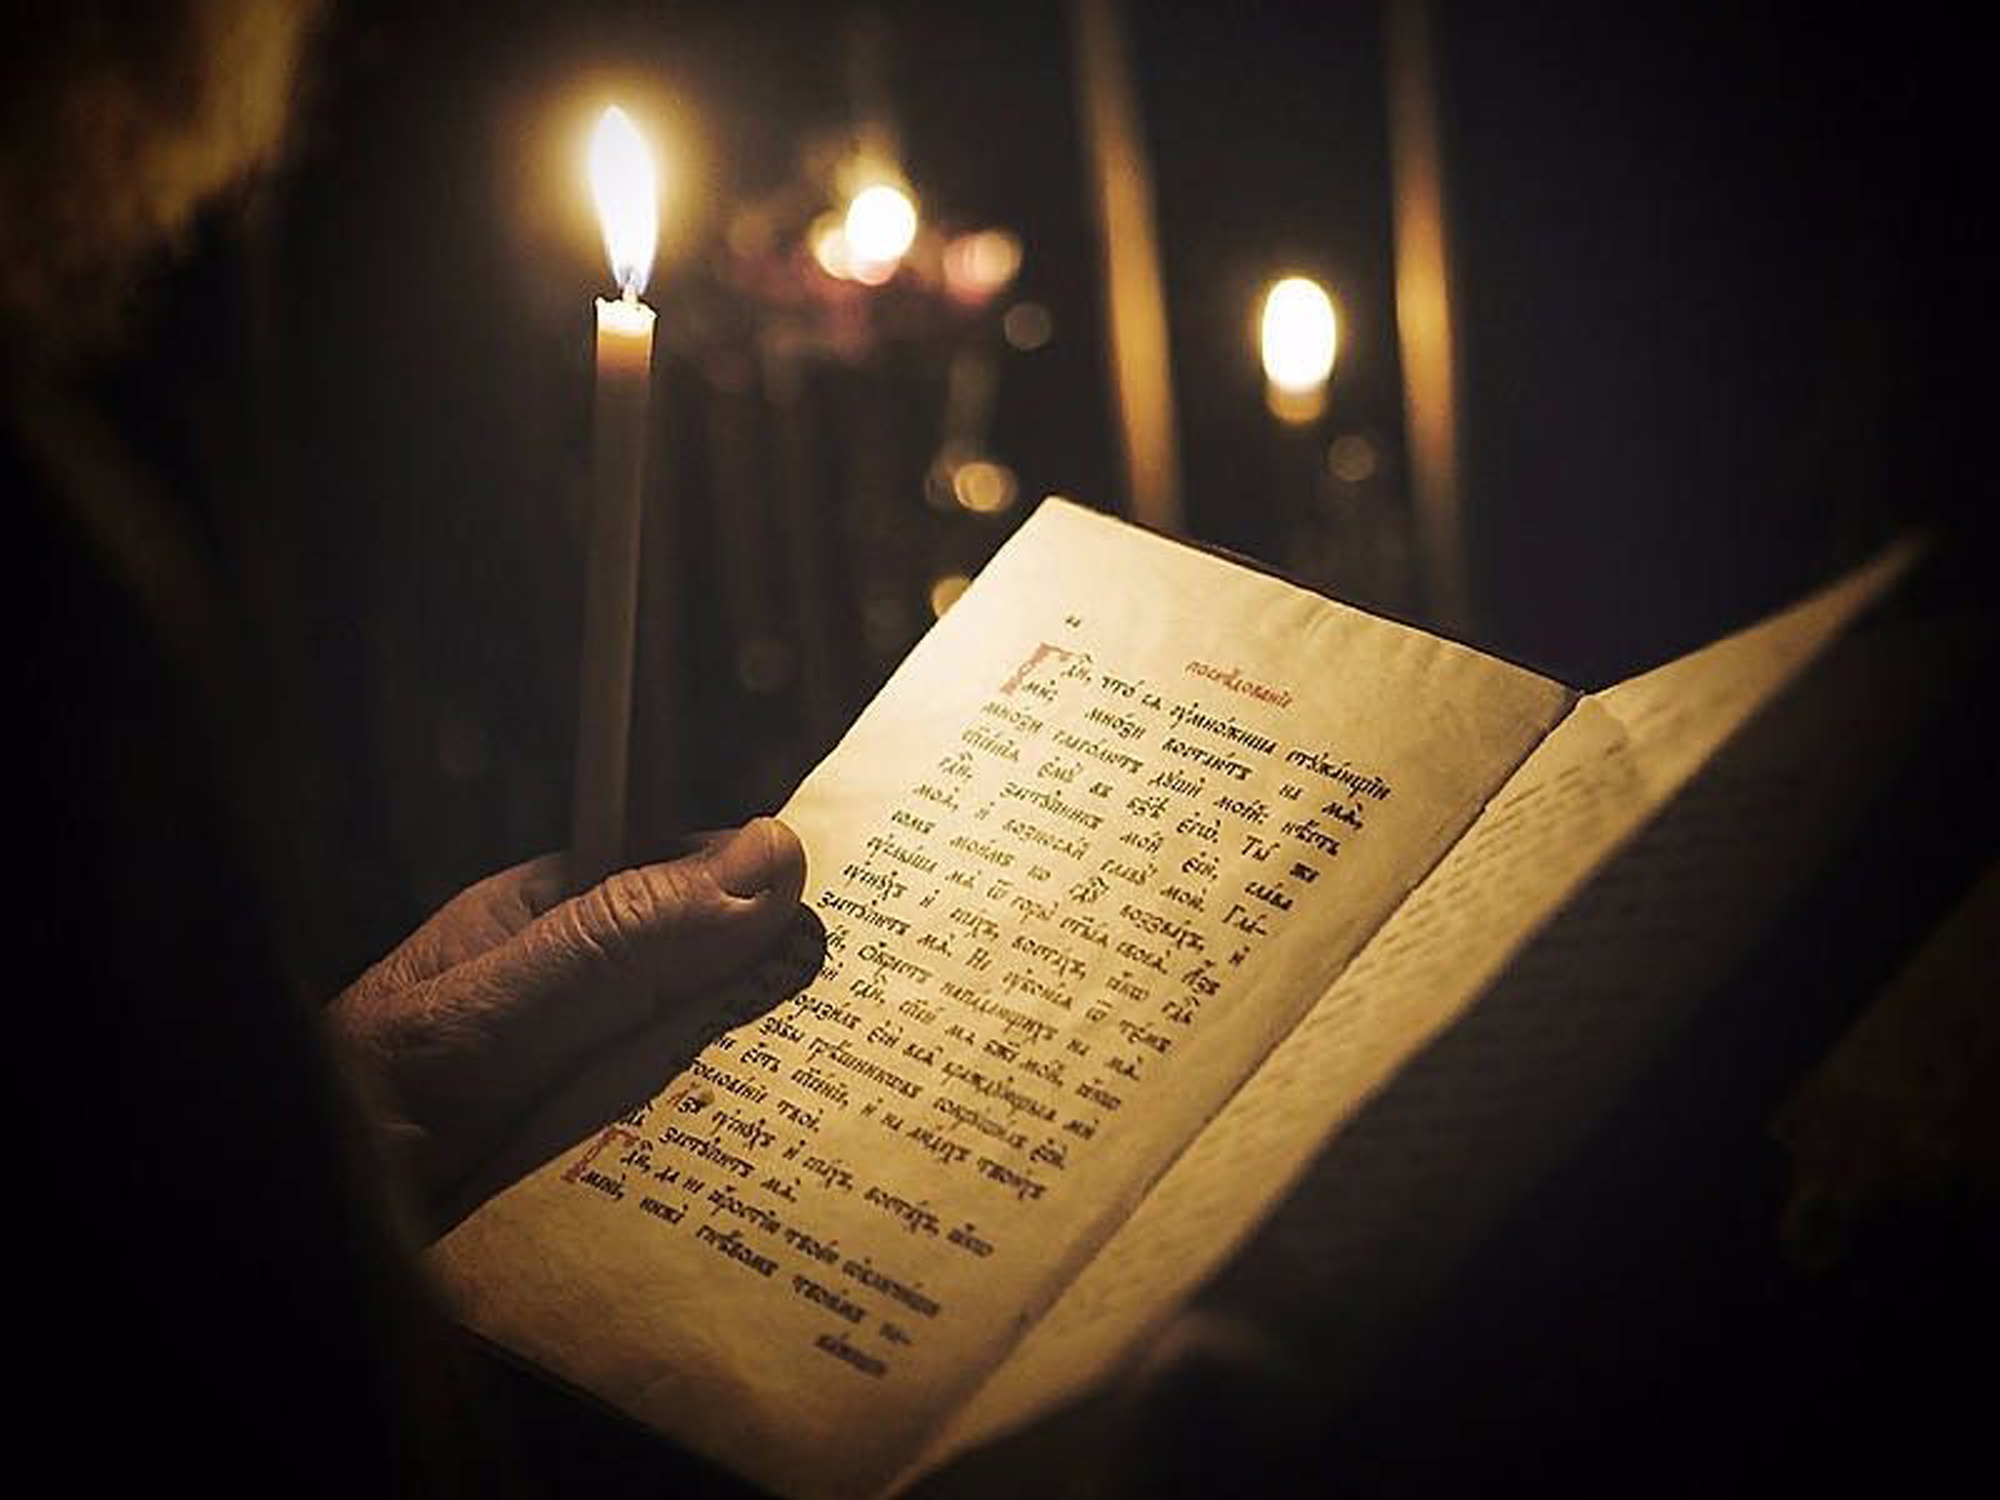 послѣ́дованїе
Гдⷭ҇и, что̀ сѧ ᲂу҆мно́жиша стꙋжа́ющїи
мѝ; мно́зи востаю́тъ на мѧ̀,
мно́зи глаго́лютъ дꙋшѝ мое́й: нѣ́сть
спⷭ҇е́нїѧ є҆мꙋ̀ въ бз҃ѣ є҆гѡ̀. Ты́ же
гдⷭ҇и, застꙋ́пникъ мо́й є҆сѝ, сла́ва
моѧ̀, и҆ возносѧ́й главꙋ̀ мою̀. Гла́-
сомъ мои́мъ ко гдⷭ҇ꙋ воззва́хъ, и҆
ᲂу҆слы́ша мѧ̀ ѿ горы̀ ст҃ы́ѧ своеѧ̀. А҆́зъ
ᲂу҆снꙋ́хъ и҆ спа́хъ, воста́хъ, ꙗ҆́кѡ гдⷭ҇ь
застꙋ́питъ мѧ̀. Не ᲂу҆бою́сѧ ѿ те́мъ
ѡ҆́крестъ напа́дающихъ на мѧ̀.
гдⷭ҇и, спⷭ҇и́ мѧ бж҃е мо́й, ꙗ҆́кѡ
порази́лъ є҆сѝ всѧ̀ вражду́ющыѧ мѝ
зꙋ́бы грѣ́шникѡвъ сокрꙋши́лъ є҆сѝ.
є҆́сть спⷭ҇е́нїе, и҆ на лю́дехъ твои́хъ
благослове́нїе твоѐ.
А҆́зъ ᲂу҆снꙋ́хъ и҆ спа́хъ, воста́хъ, ꙗ҆́кѡ
застꙋ́питъ мѧ̀.
Гдⷭ҇и, да не ꙗ҆́ростїю твое́ю ѡ҆бличи́ши
менѐ, нижѐ гнѣ́вомъ твои́мъ на-
ка́жеши